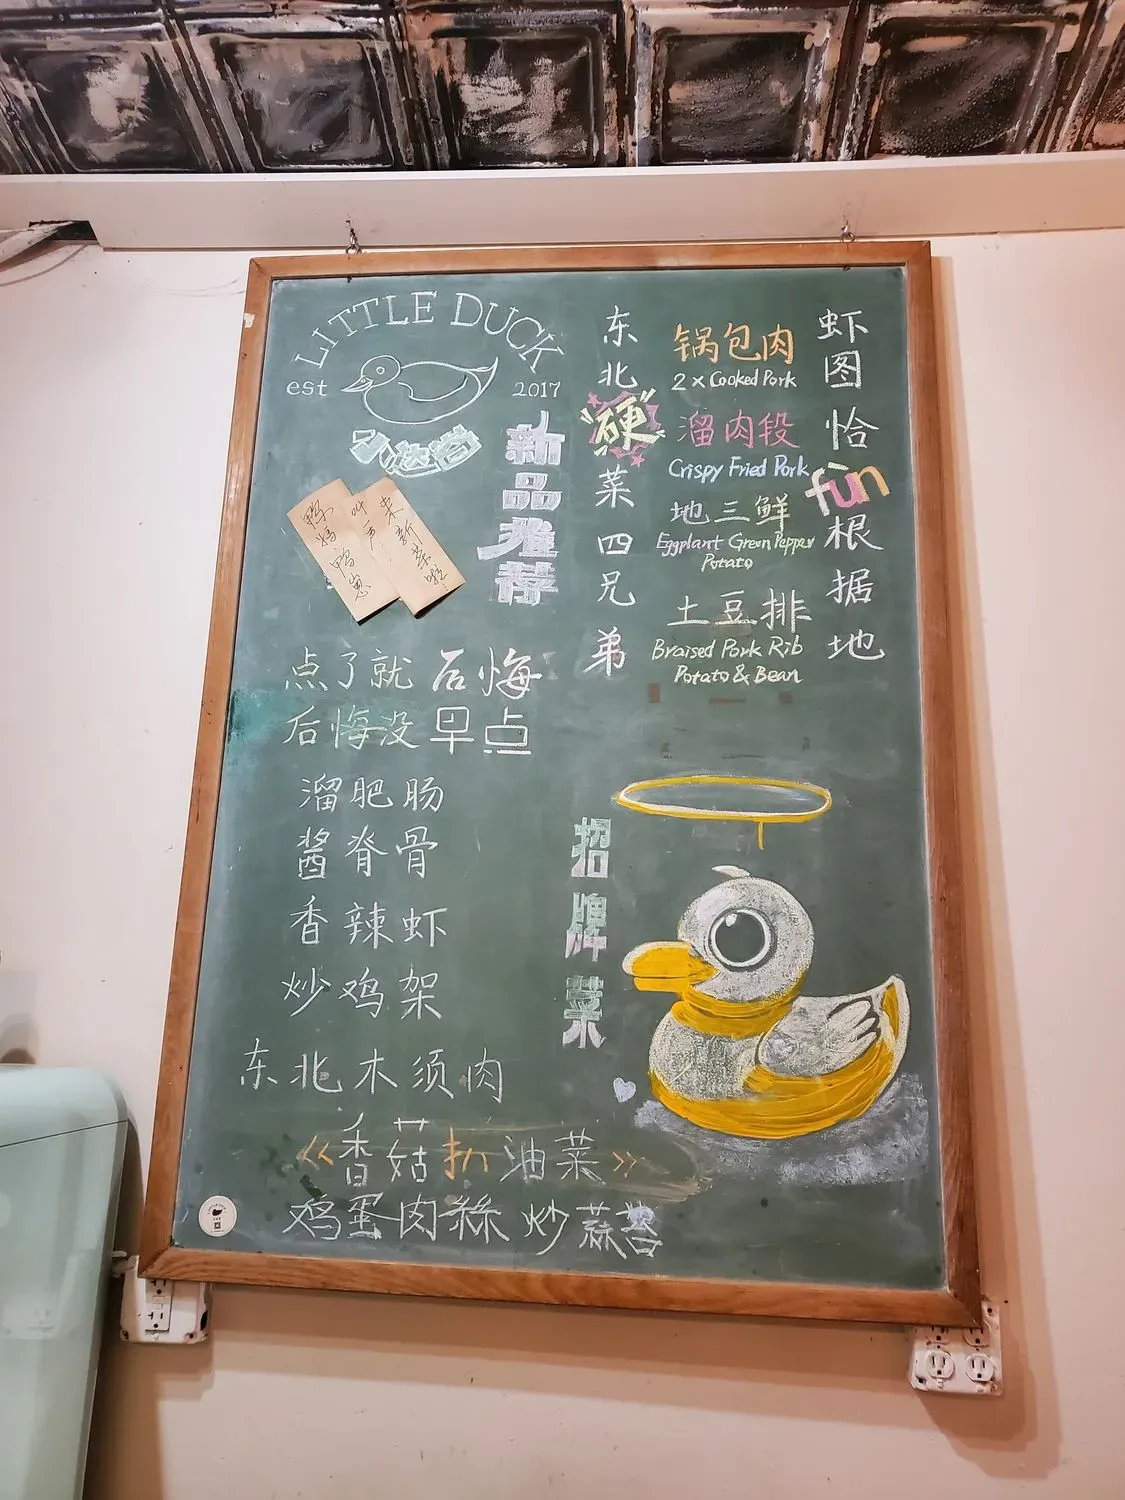 LITTLE DUCK
est 2017
新品推荐
鸭妈鸭崽
叫声
来新菜啦!
点了就后悔
后悔没早点
溜肥肠
酱脊骨
香辣虾
炒鸡架
东北木须肉
《香菇扒油菜》
鸡蛋肉絲炒蒜苔
东北硬菜四兄弟
锅包肉
2 x Cooked Pork
溜肉段
Crispy Fried Pork
地三鲜
Eggplant Green Pepper
Potato
土豆排
Braised Pork Rib
Potato & Bean
虾图恰fùn根据地
招牌菜